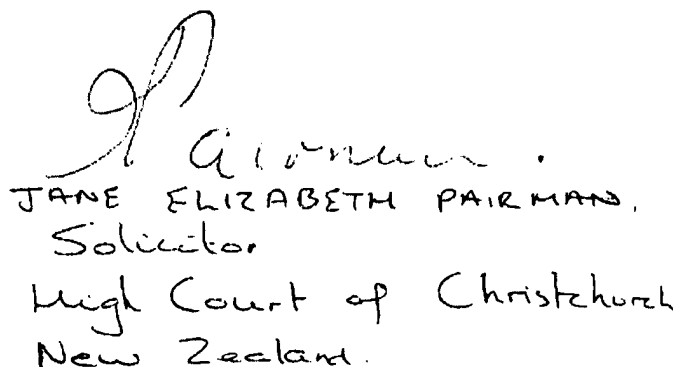 Pairman.
JANE ELIZABETH PAIRMAN.
Solicitor
High Court of Christchurch
New Zealand.